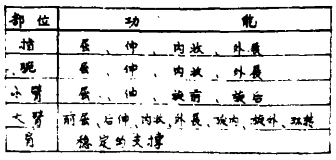 部位 功能
指 屈、伸、内收、外展
腕 屈、伸、内收、外展
小臂 屈、伸、旋前、旋后
大臂 前屈、后伸、内收、外展、旋内、旋外、环转
肩 稳定的支撑